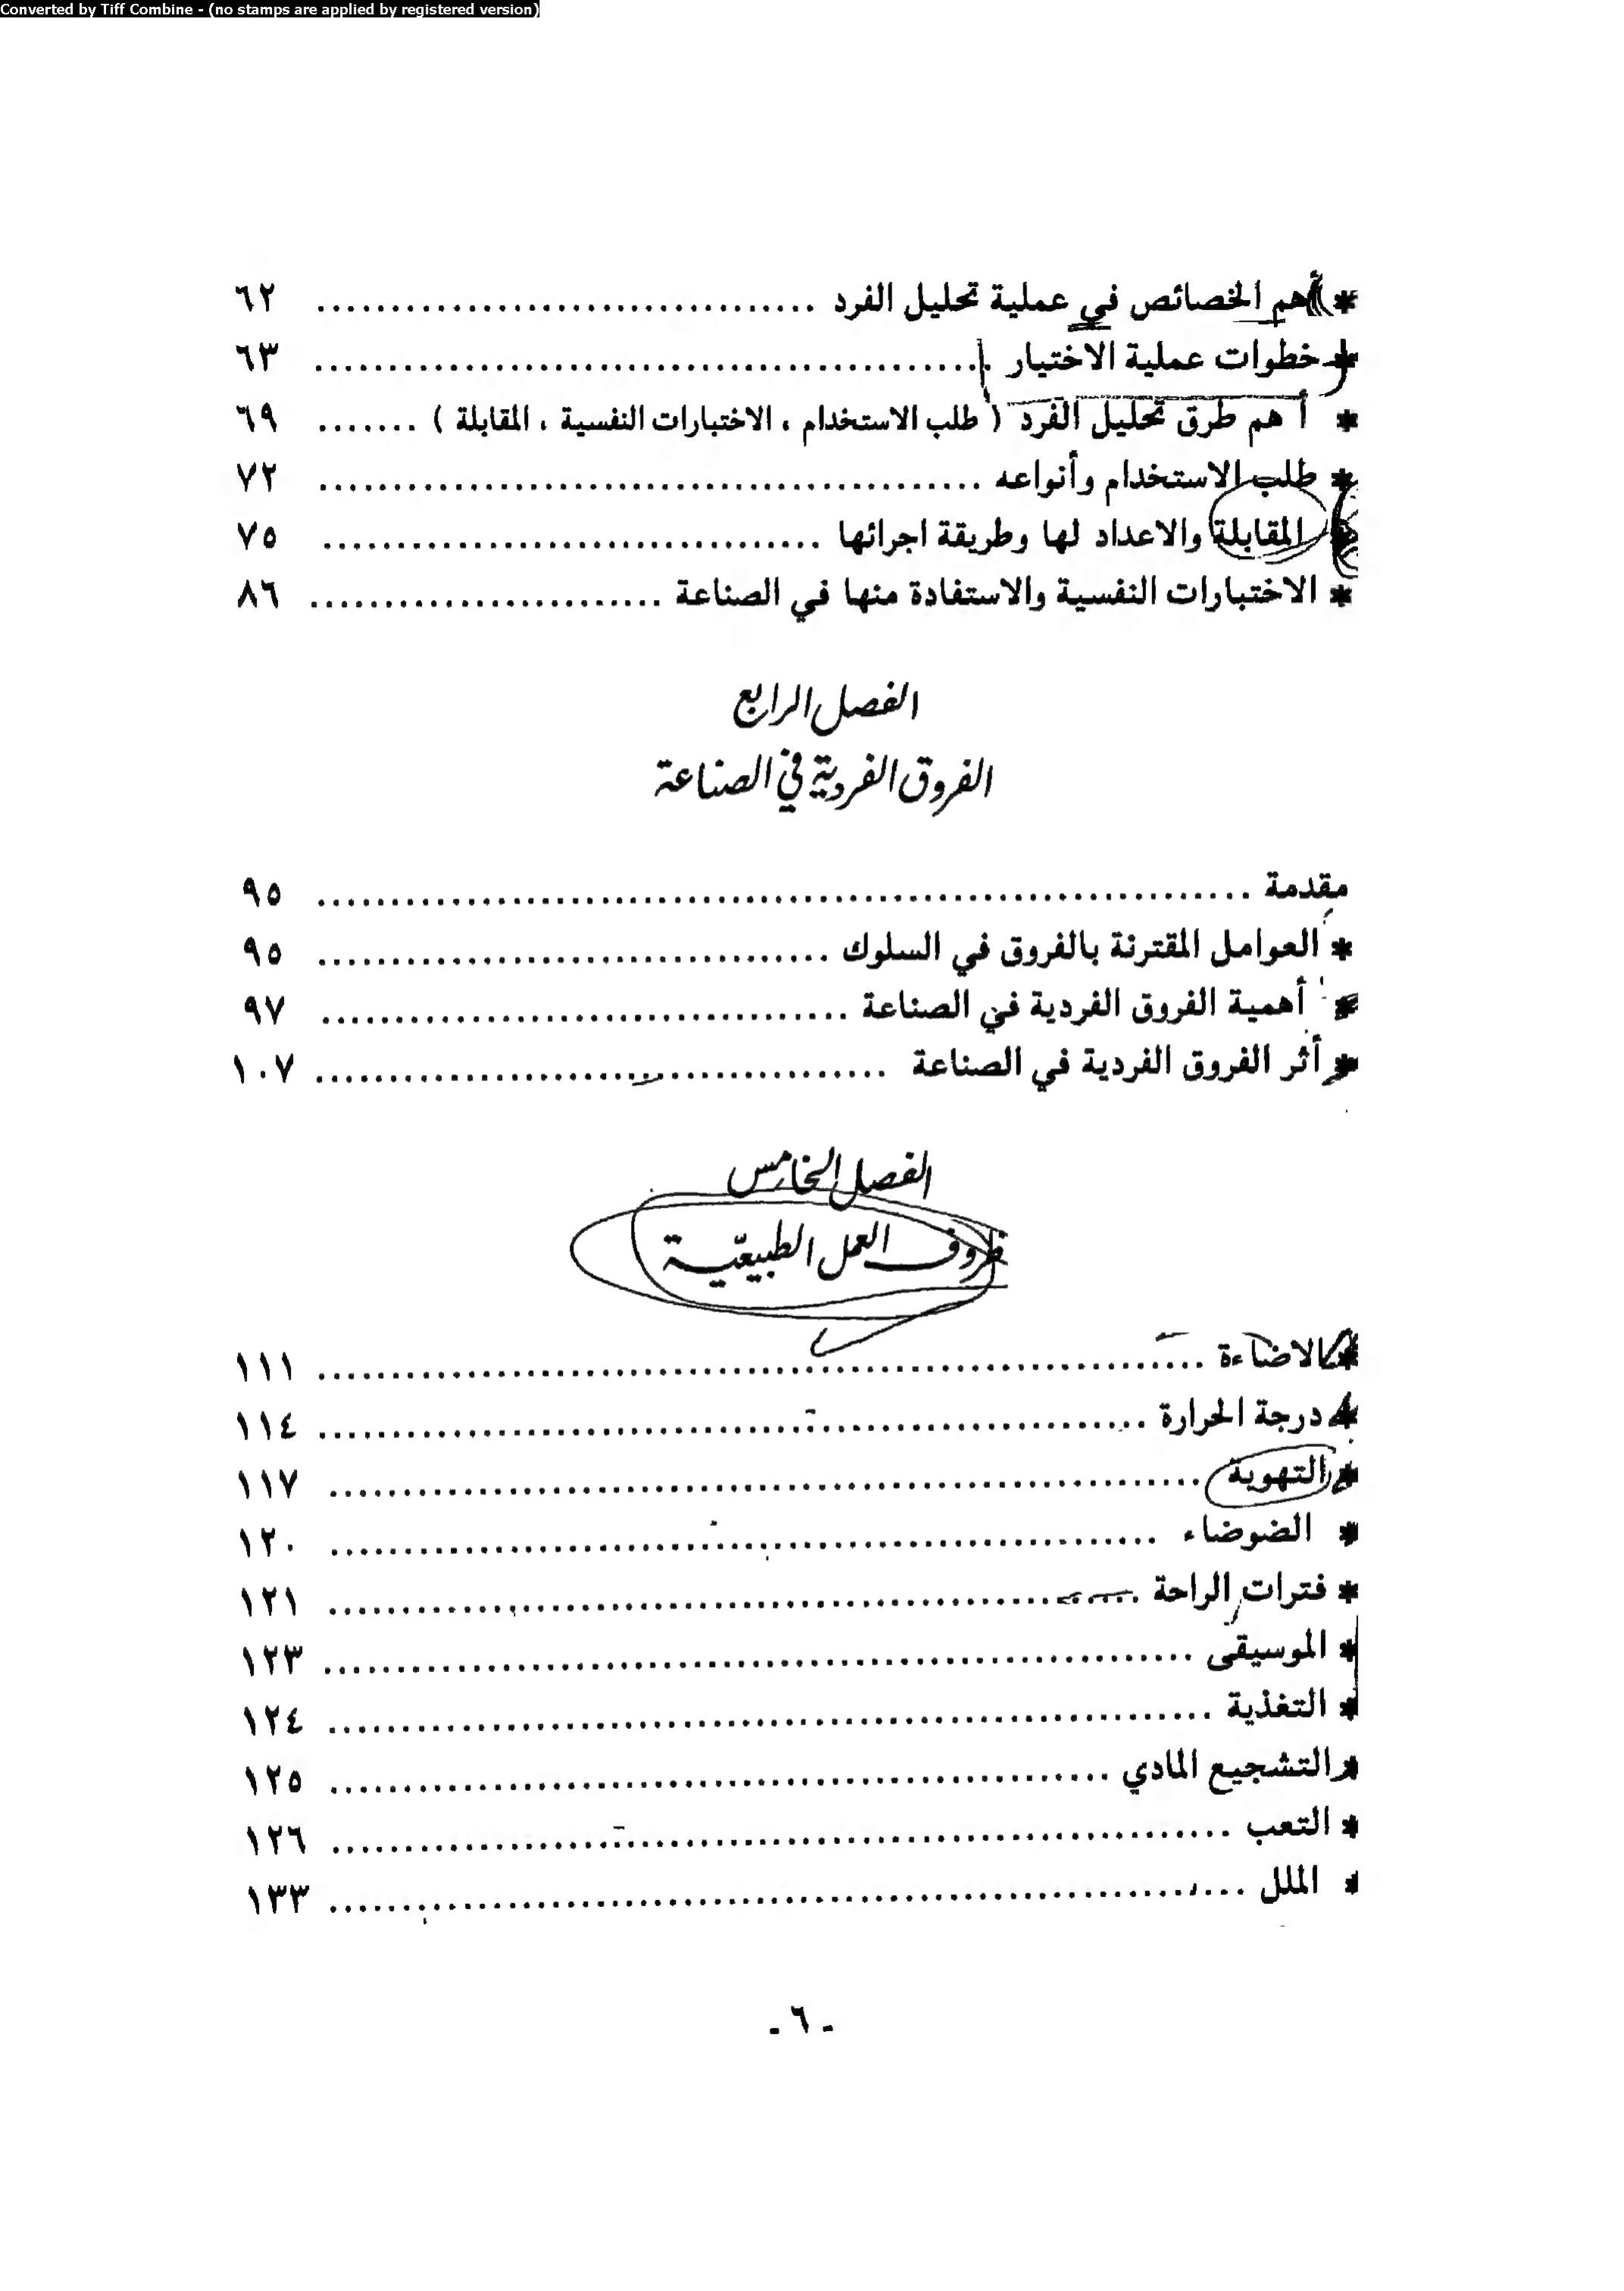 Converted by Tiff Combine - (no stamps are applied by registered version)
* أهم الخصائص في عملية تحليل الفرد .................................. ٦٢
* خطوات عملية الاختيار ............................................. ٦٣
* أهم طرق تحليل الفرد ( طلب الاستخدام ، الاختبارات النفسية ، المقابلة ) ....... ٦٩
* طلب الاستخدام وأنواعه ............................................. ٧٢
* المقابلة والاعداد لها وطريقة اجرائها .................................. ٧٥
* الاختبارات النفسية والاستفادة منها في الصناعة ........................ ٨٦
الفصل الرابع
الفروق الفردية في الصناعة
مقدمة ................................................................ ٩٥
* العوامل المقترنة بالفروق في السلوك ................................... ٩٥
* أهمية الفروق الفردية في الصناعة .................................... ٩٧
* أثر الفروق الفردية في الصناعة ....................................... ١٠٧
الفصل الخامس
ظروف العمل الطبيعيّة
* الاضاءة ............................................................ ١١١
* درجة الحرارة ........................................................ ١١٤
* التهوية ............................................................ ١١٧
* الضوضاء ......................................................... ١٢٠
* فترات الراحة ....................................................... ١٢١
* الموسيقى ........................................................... ١٢٣
* التغذية ............................................................ ١٢٤
* التشجيع المادي ..................................................... ١٢٥
* التعب ............................................................. ١٢٦
* الملل .............................................................. ١٣٣
- ٦ -